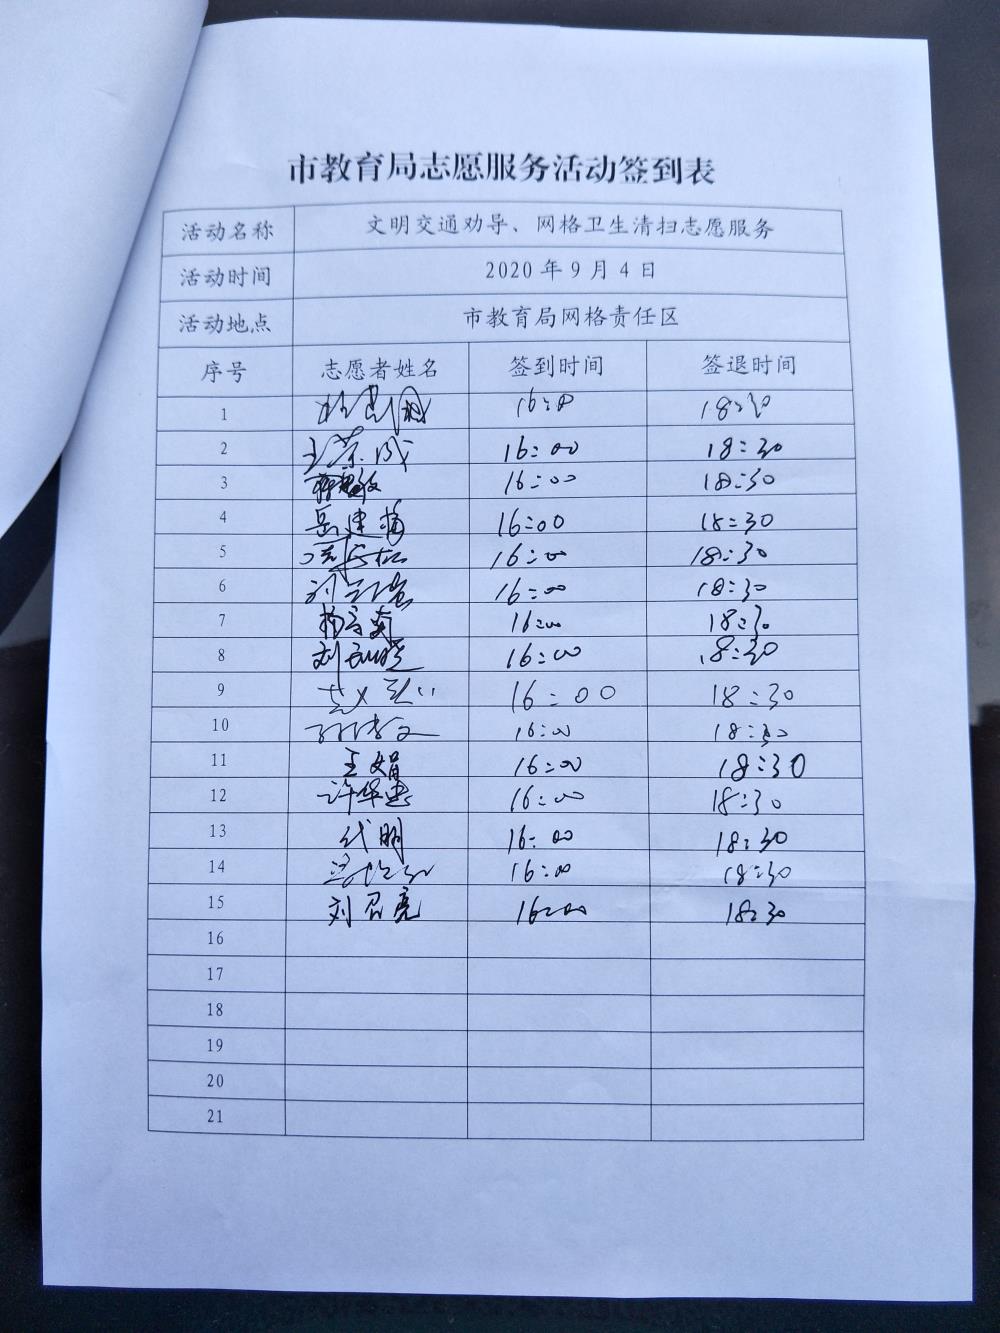 市教育局志愿服务活动签到表
活动名称 文明交通劝导、网格卫生清扫志愿服务
活动时间 2020年9月4日
活动地点 市教育局网格责任区
序号 志愿者姓名 签到时间 签退时间
1
2 16:00 18:30
3 16:00 18:30
4 岳建梅 16:00 18:30
5 16:00 18:30
6 16:00 18:30
7 16:00 18:30
8 16:00 18:30
9 16:00 18:30
10 16:00 18:30
11 王娟 16:00 18:30
12 许华忠 16:00 18:30
13 代明 16:00 18:30
14 16:00 18:30
15 刘召亮 16:00 18:30
16
17
18
19
20
21